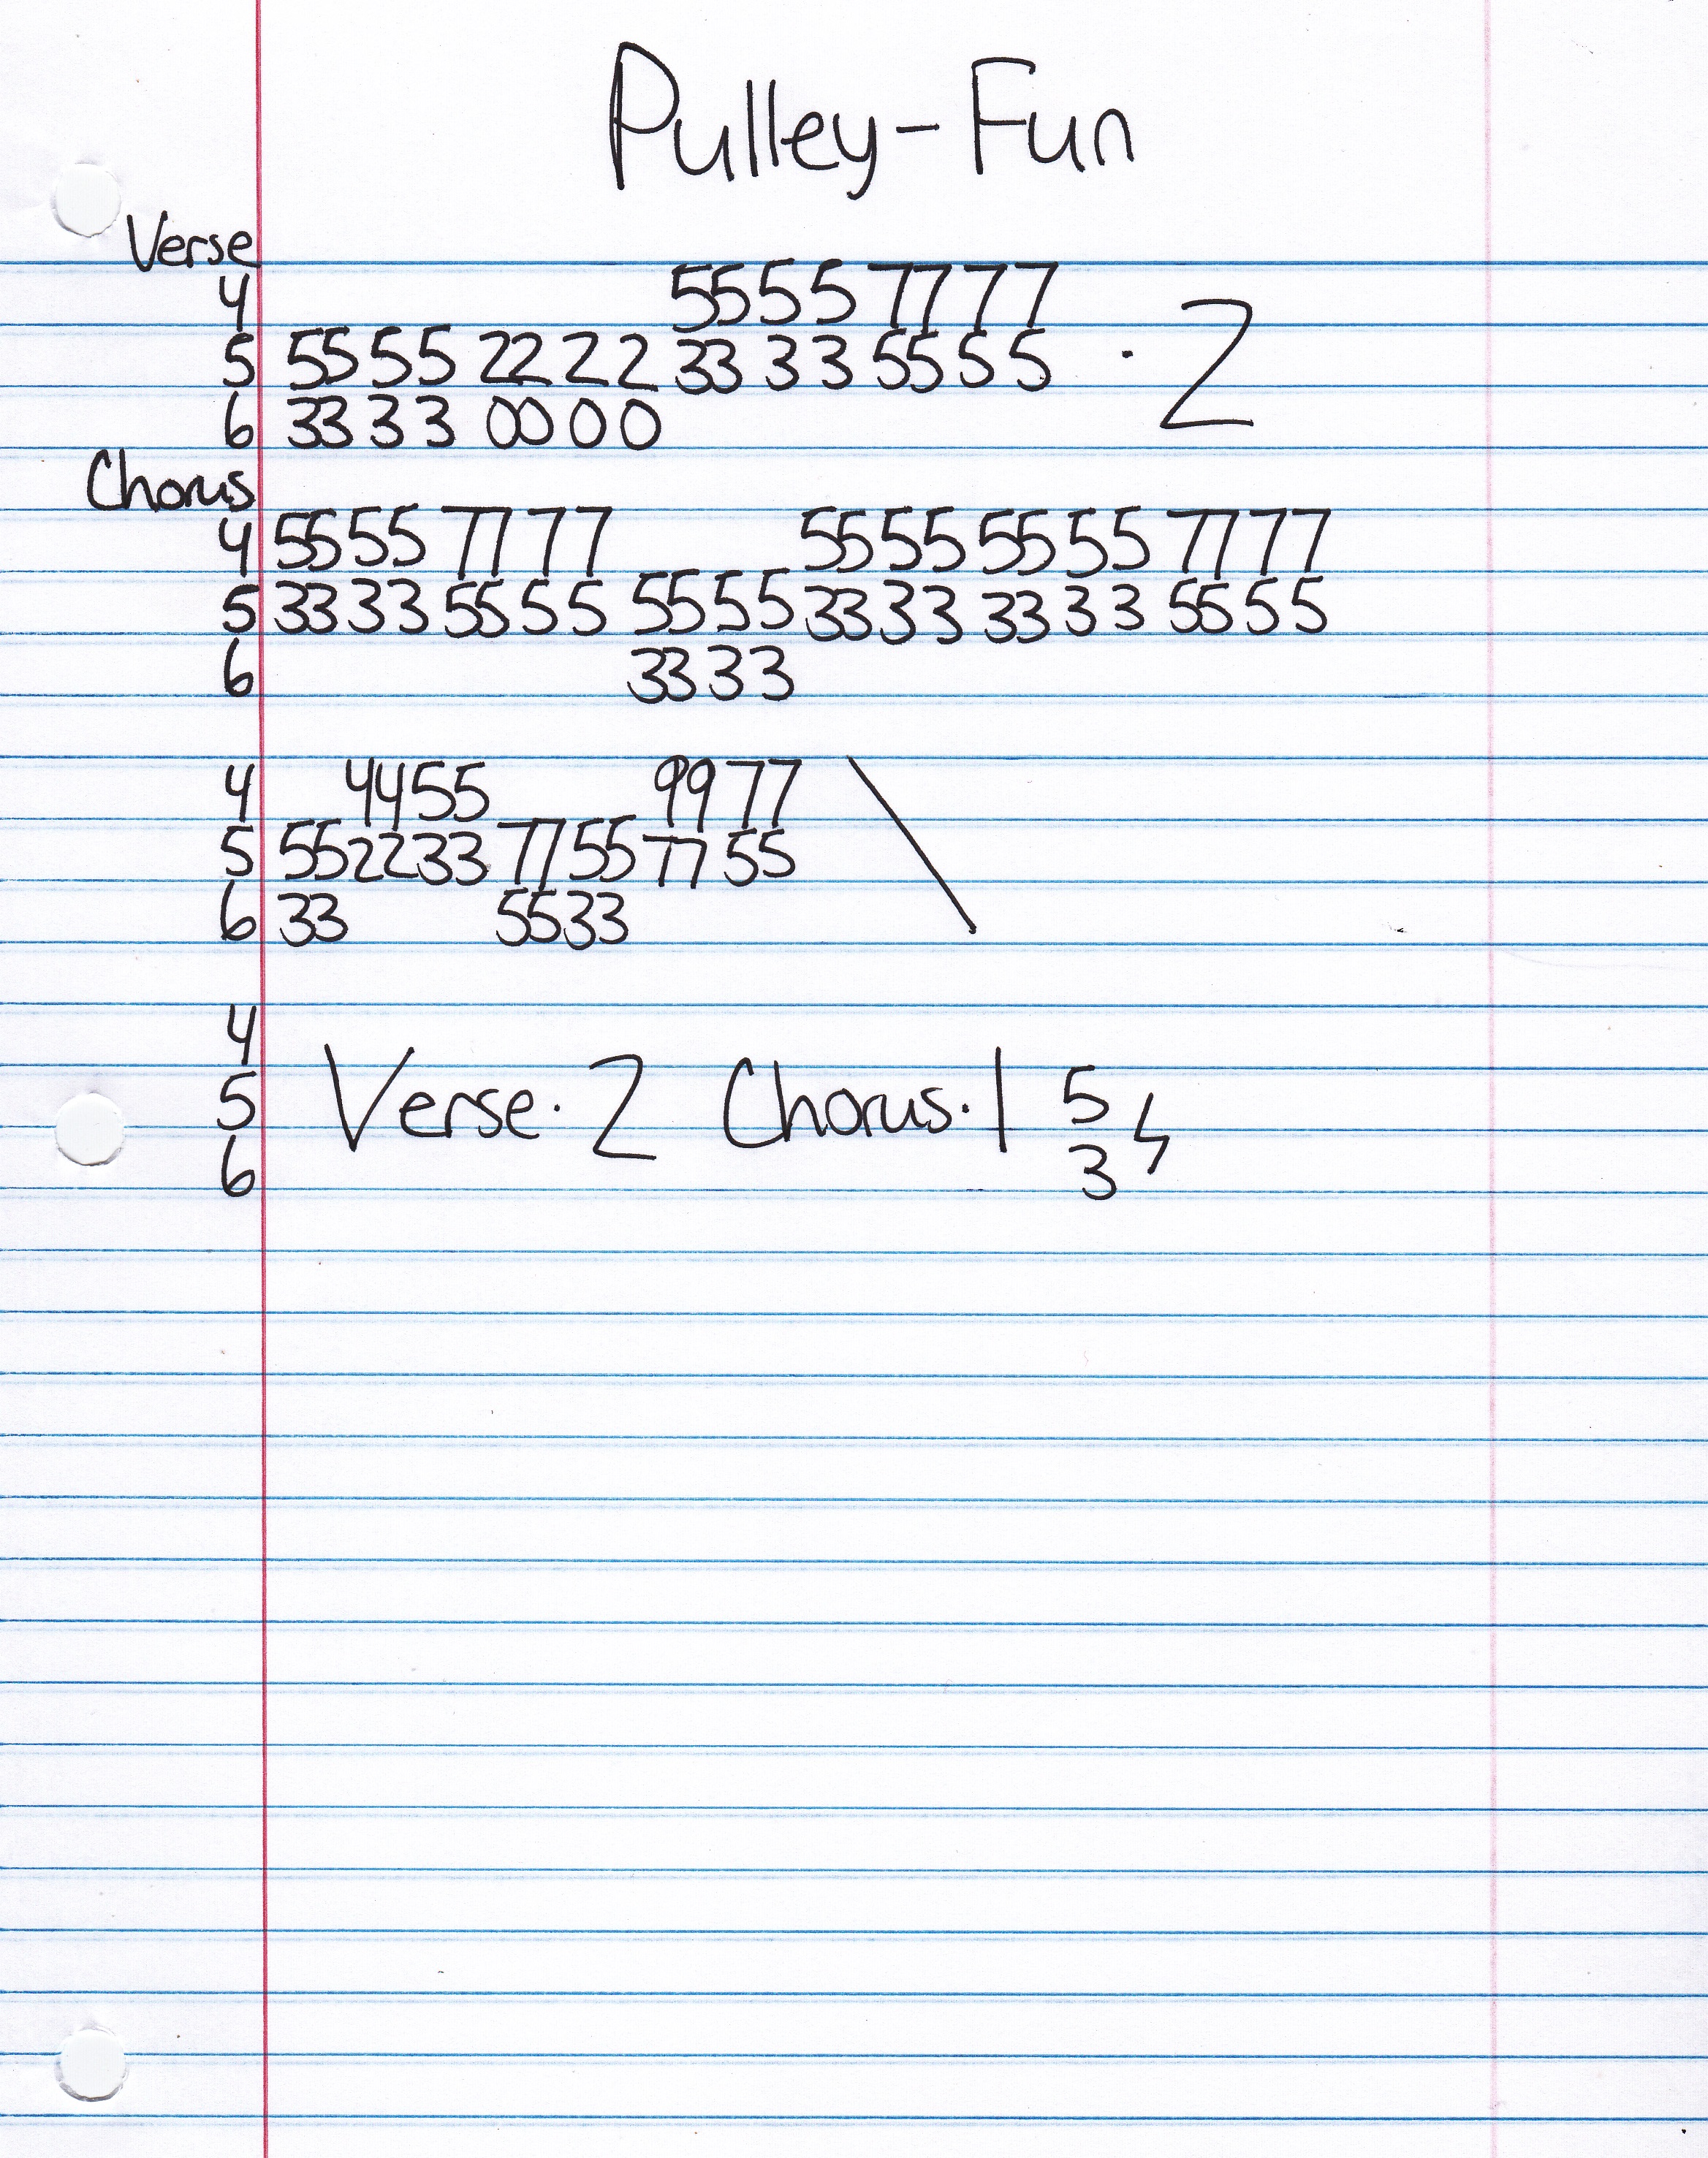 Pulley-Fun
Verse
4 55 5 5 77 7 7
5 55 5 5 22 2 2 33 3 3 55 5 5 · 2
6 33 3 3 00 0 0
Chorus
4 55 55 77 7 7 55 55 55 55 77 77
5 33 33 55 5 5 55 55 33 33 33 3 3 55 55
6 33 33
4 4455 99 77
5 552233 7755 77 55 \
6 33 5533
4
5 Verse·2 Chorus·1 5 ϟ
6 3